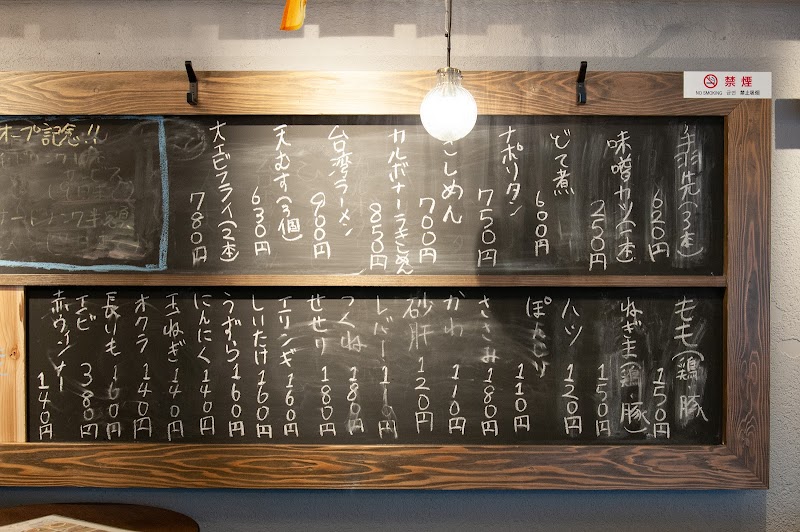 禁煙
NO SMOKING 금연 禁止吸烟
手羽先(3本) 620円
味噌カツ(1本) 250円
どて煮 600円
ナポリタン 750円
きしめん 700円
カルボナーラきしめん 850円
台湾ラーメン 900円
天むす(3個) 630円
大エビフライ(2本) 780円
オープ記念!!
もも(鶏 豚 150円
ねぎま(鶏・豚) 150円
ハツ 120円
ぼんじり 110円
ささみ 180円
かわ 110円
砂肝 120円
レバー 110円
つくね 180円
せせり 180円
エリンギ 160円
しいたけ 160円
うずら 160円
にんにく 140円
玉ねぎ 140円
オクラ 140円
長いも 160円
エビ 380円
赤ウィンナー 140円